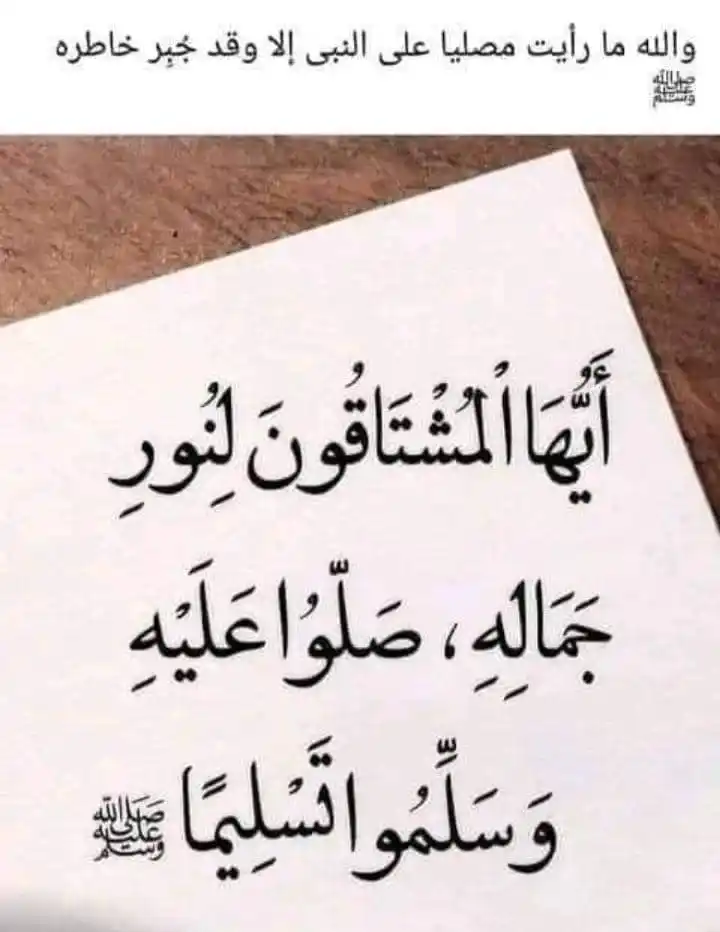 والله ما رأيت مصليا على النبى إلا وقد جُبِر خاطره
ﷺ
أَيُّهَا الْمُشْتَاقُونَ لِنُورِ
جَمَالِهِ، صَلُّوا عَلَيْهِ
وَسَلِّمُوا تَسْلِيمًا ﷺ